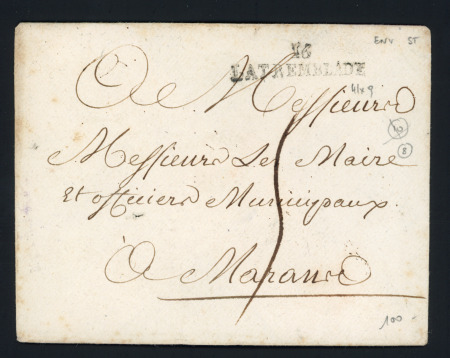 ENV ST
16
LATREMBLADE
A Messieurs
41x9
10
8
Messieurs Les Maire
Et officiers Municipaux
A Marans
5
100 -